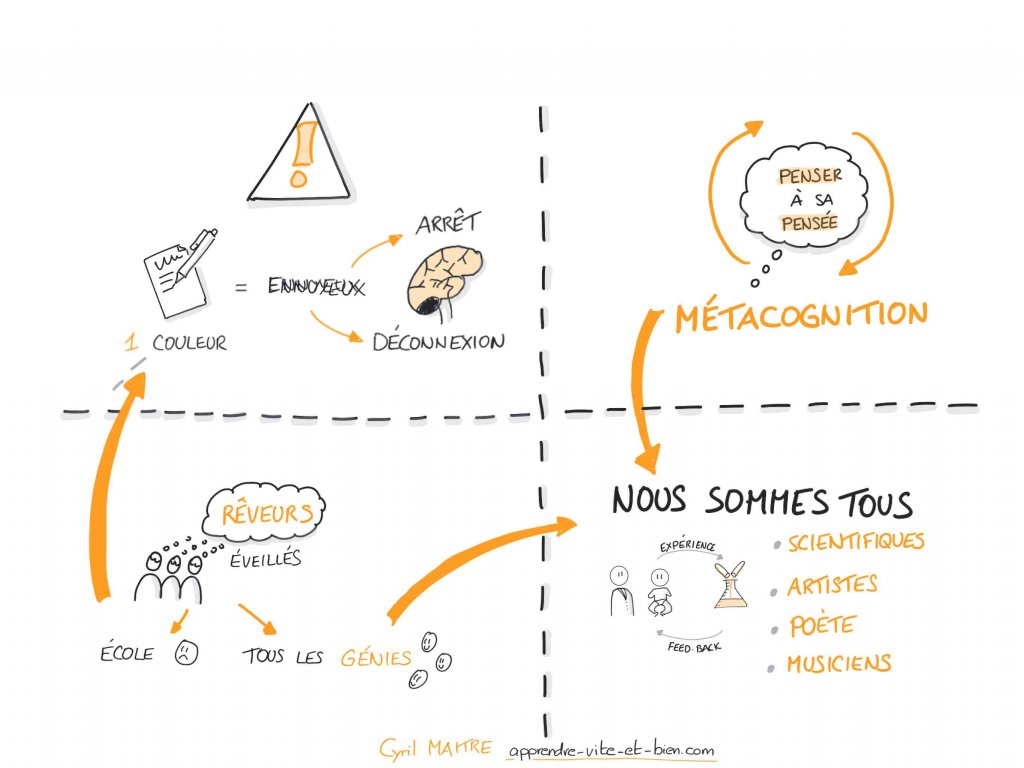 !
ARRÊT
= ENNUYEUX
1 COULEUR
DÉCONNEXION
PENSER
À SA
PENSÉE
MÉTACOGNITION
RÊVEURS
ÉVEILLÉS
ÉCOLE
TOUS LES GÉNIES
NOUS SOMMES TOUS
EXPÉRIENCE
FEED-BACK
• SCIENTIFIQUES
• ARTISTES
• POÈTE
• MUSICIENS
Cyril MAITRE apprendre-vite-et-bien.com